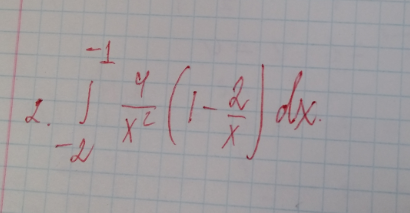 2. ∫_{-2}^{-1} 4/x² (1 - 2/x) dx.